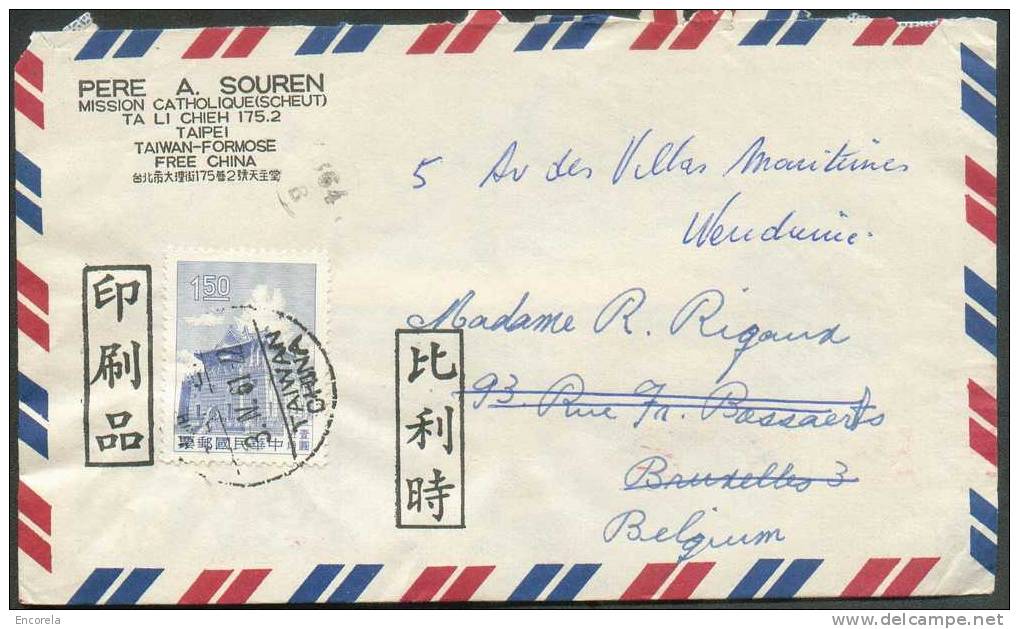 PERE A. SOUREN
MISSION CATHOLIQUE(SCHEUT)
TA LI CHIEH 175.2
TAIPEI
TAIWAN-FORMOSE
FREE CHINA
台北市大理街175巷2號天主堂
5 Av des Villas Maritimes
Wenduine
Madame R. Rigaux
93 Rue Fr. Bossaerts
Bruxelles 3
Belgium
印刷品
比利時
1.50
中華民國郵票
壹圓
TAIWAN
CHINA
Encorela
www.delcampe.net